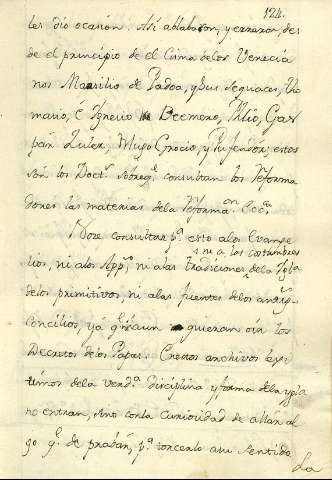 124.
les dio ocasión. Asi ablabaron, y erraron, des
de el principio de el Cisma de los Venecia
nos Marsilio de Padoa, y sus sequaces,
mario, è Ygnecio Decmero, Gas
pár Zuler, Vgo Grocio, y Pufendor, estos
són los Doct.s sobre q.e consultan los Reforma
dores las materias de la Reforma.on Ecc.ca
No se consultar p.a esto a los Evange
s ni a las costumbres
lios, ni a los App.s, ni a las tradiciones de la Ygla
de los primitivos, ni a las fuentes de los antig.s
Concilios, yá q.e aun no quieran oir los
Decretos de los Papas. En estos archivos
timos de la verd.a disciplina y forma de la ygla
no entran, sino con la curiosidad de allár al
go q.e de probár, p.a torcerlo a su sentido
La